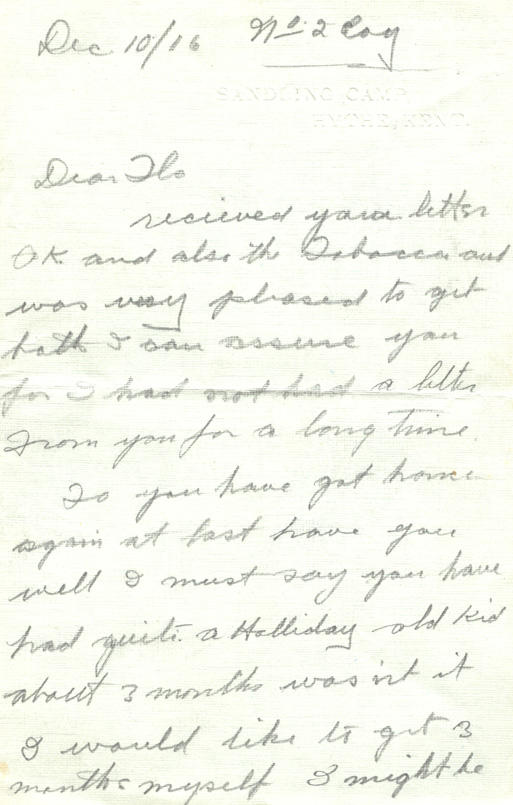 Dec 10/16 No 2 Coy
SANDLING CAMP,
HYTHE, KENT.
Dear Flo
recieved your letter
OK and also the Tobacco and
was very pleased to get
both I can assure you
for I had not had a letter
From you for a long time.
So you have got home
again at last have you
well I must say you have
had quite a Halliday old Kid
about 3 months was'nt it
I would like to get 3
months myself I might be